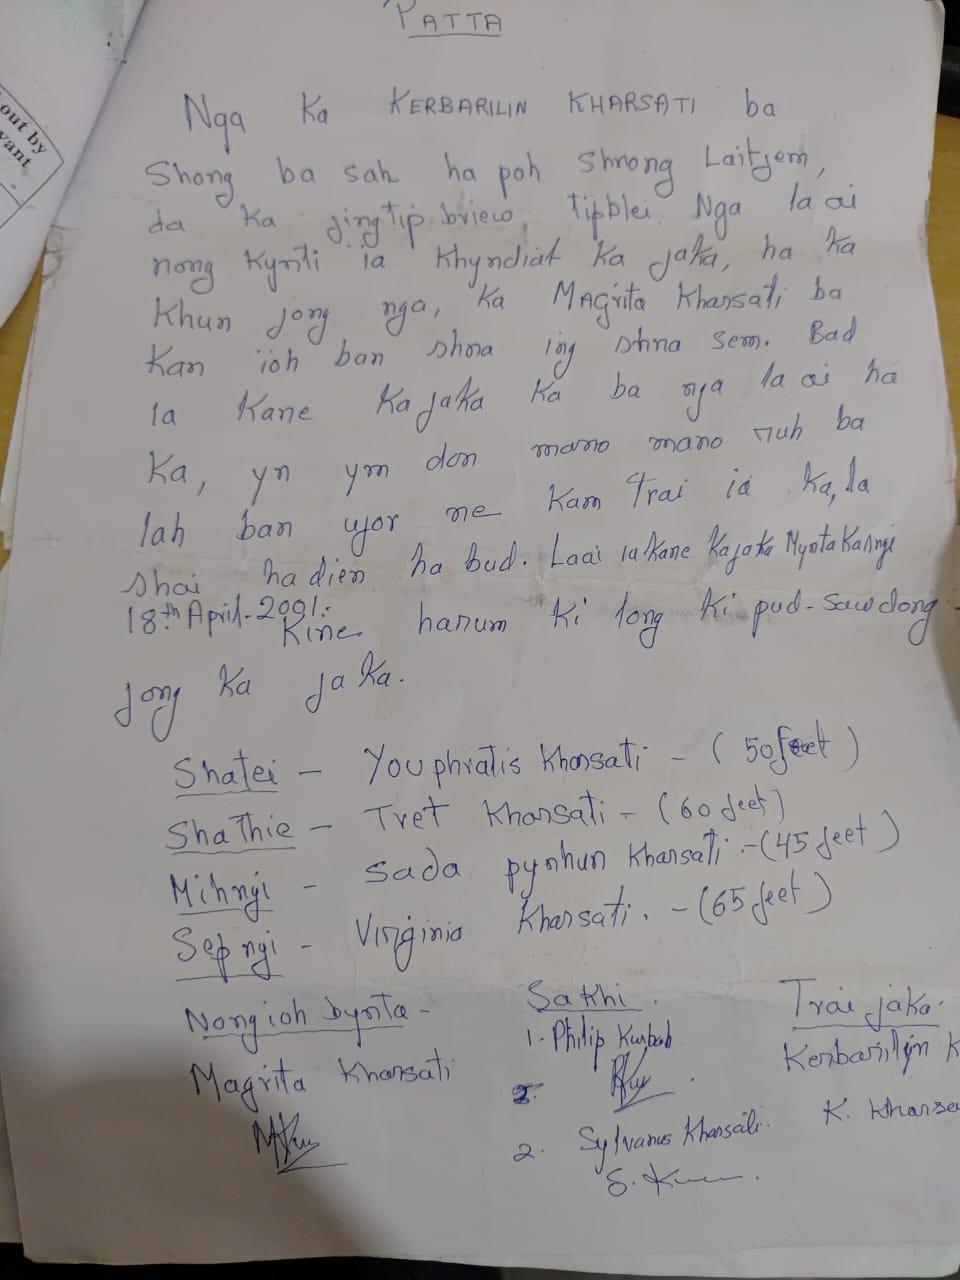 out by
vant
PATTA
Nga Ka KERBARILIN KHARSATI ba
Shong ba sah ha poh Shnong Laitjem,
da ka jingtip briew tipblei. Nga la ai
nong kynti ia khyndiat ka jaka, ha ka
khun jong nga, ka MAgrita Kharsati ba
kan ioh ban shna ing shna sem. Bad
ia kane ka jaka ka ba nga la ai ha
ka, yn ym don mano mano ruh ba
lah ban ujor ne kam trai ia ka, la
shai hadien ha bud. Laai ia kane kajaka Mynta Kasngi
18th April-2001.
Kine harum ki long ki pud-sawdong
jong ka jaka.
Shatei - Youphratis Kharsati - (50 feet)
Shathie - Tret Kharsati - (60 feet)
Mihngi - Sada pynhun Kharsati - (45 feet)
Sepngi - Virginia Kharsati. - (65 feet)
Nongioh bynta - Sakhi. Trai jaka.
Magrita Kharsati 1. Philip Kurbah Kerbarilyn K
2. Sylvanus Kharsati. K. Kharsa